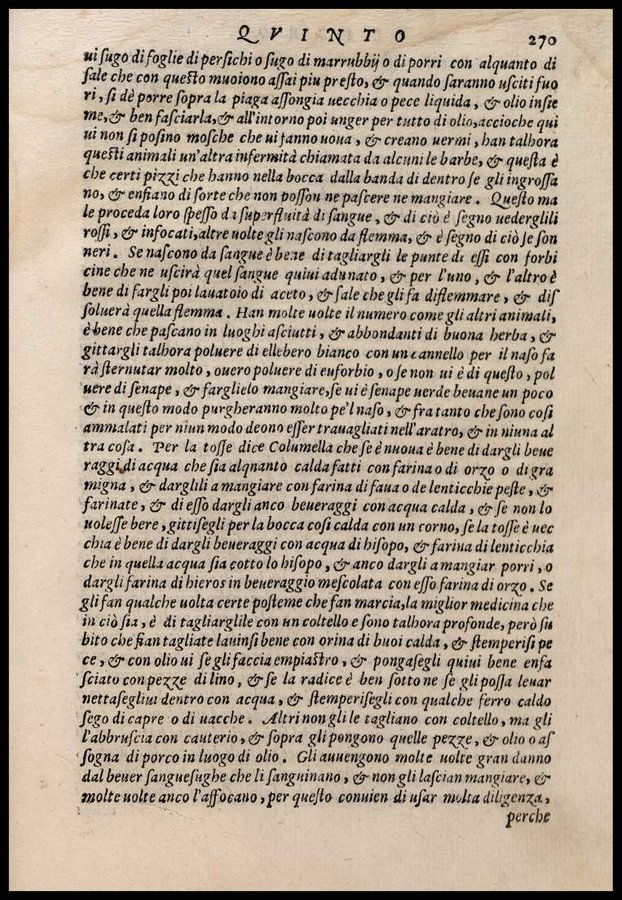 QVINTO 270
ui sugo di foglie di persichi o sugo di marrubbij o di porri con alquanto di
sale che con questo muoiono assai piu presto, & quando saranno usciti fuo
ri, si dè porre sopra la piaga assongia uecchia o pece liquida, & olio insie
me, & ben fasciarla, & all'intorno poi unger per tutto di olio, accioche qui
ui non si posino mosche che ui fanno uoua, & creano uermi, han talhora
questi animali un'altra infermità chiamata da alcuni le barbe, & questa è
che certi pizzi che hanno nella bocca dalla banda di dentro se gli ingrossa
no, & enfiano di sorte che non posson ne pascere ne mangiare. Questo ma
le proceda loro spesso di superfluità di sangue, & di ciò è segno uederglili
rossi, & infocati, altre uolte gli nascono da flemma, & è segno di ciò se son
neri. Se nascono da sangue è bene di tagliargli le punte di essi con forbi
cine che ne uscirà quel sangue quiui adunato, & per l'uno, & l'altro è
bene di fargli poi lauatoio di aceto, & sale che gli fa diflemmare, & dis
soluerà quella flemma. Han molte uolte il numero come gli altri animali,
è bene che pascano in luoghi asciutti, & abbondanti di buona herba, &
gittargli talhora poluere di ellebero bianco con un cannello per il naso fa
rà sternutar molto, ouero poluere di euforbio, o se non ui è di questo, pol
uere di senape, & farglielo mangiare, se ui è senape uerde beuane un poco
& in questo modo purgheranno molto pe'l naso, & fra tanto che sono cosi
ammalati per niun modo deono esser trauagliati nell'aratro, & in niuna al
tra cosa. Per la tosse dice Columella che se è nuoua è bene di dargli beue
raggi di acqua che sia alquanto calda fatti con farina o di orzo o di gra
migna, & darglili a mangiare con farina di faua o de lenticchie peste, &
farinate, & di esso dargli anco beueraggi con acqua calda, & se non lo
uolesse bere, gittisegli per la bocca cosi calda con un corno, se la tosse è uec
chia è bene di dargli beueraggi con acqua di hisopo, & farina di lenticchia
che in quella acqua sia cotto lo hisopo, & anco dargli a mangiar porri, o
dargli farina di hieros in beueraggio mescolata con esso farina di orzo. Se
gli fan qualche uolta certe posteme che fan marcia, la miglior medicina che
in ciò sia, è di tagliarglile con un coltello e sono talhora profonde, però su
bito che sian tagliate lauinsi bene con orina di buoi calda, & stemperisi pe
ce, & con olio ui se gli faccia empiastro, & pongasegli quiui bene enfa
sciato con pezze di lino, & se la radice è ben sotto ne se gli possa leuar
nettasegliui dentro con acqua, & stemperisegli con qualche ferro caldo
sego di capre o di uacche. Altri non gli le tagliano con coltello, ma gli
l'abbruscia con cauterio, & sopra gli pongono quelle pezze, & olio o as
sogna di porco in luogo di olio. Gli auuengono molte uolte gran danno
dal beuer sanguesughe che li sanguinano, & non gli lascian mangiare, &
molte uolte anco l'affocano, per questo conuien di usar molta diligenza,
perche